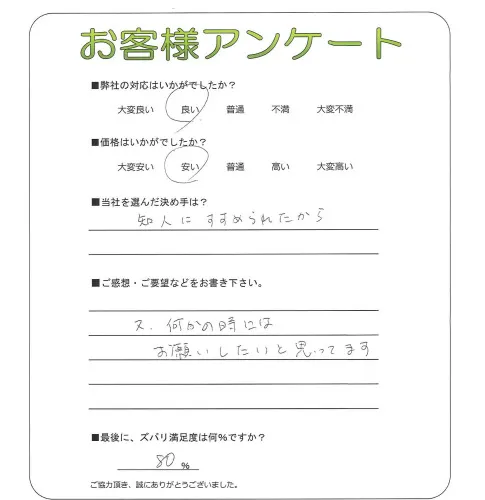 お客様アンケート
■弊社の対応はいかがでしたか？
大変良い 良い 普通 不満 大変不満
■価格はいかがでしたか？
大変安い 安い 普通 高い 大変高い
■当社を選んだ決め手は？
知人にすすめられたから
■ご感想・ご要望などをお書き下さい。
又、何かの時には
お願いしたいと思ってます
■最後に、ズバリ満足度は何％ですか？
80 ％
ご協力頂き、誠にありがとうございました。